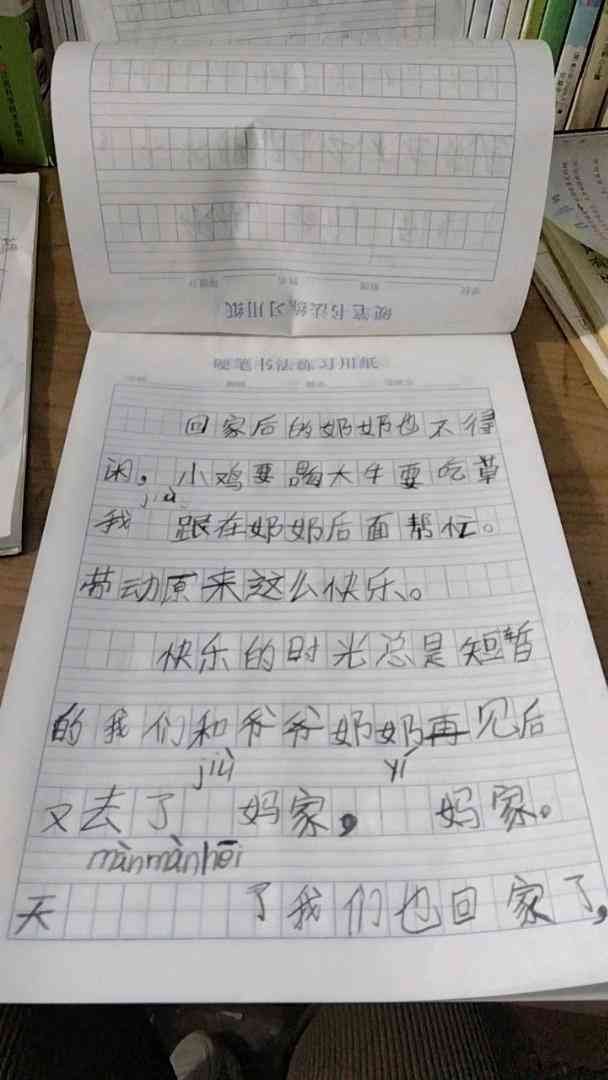 硬笔书法练习用纸
硬笔书法练习用纸
回家后的奶奶也不得
闲，小鸡要喂大牛要吃草
jiù
我 跟在奶奶后面帮忙。
劳动原来这么快乐。
快乐的时光总是短暂
的我们和爷爷奶奶再见后
jiù yí
又去了 妈家， 妈家。
mànmànhēi
天 了我们也回家了，